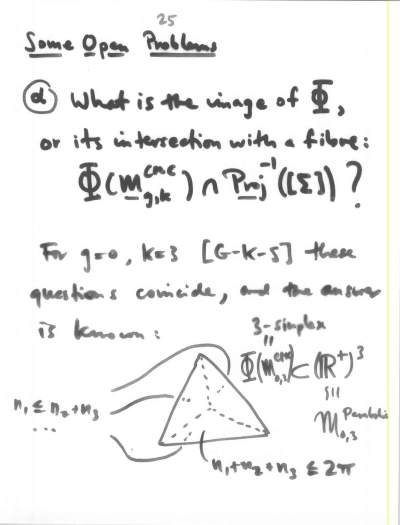 25
Some Open Problems
(d) What is the image of Φ,
or its intersection with a fibre:
Φ(M^{cnc}_{g,k}) ∩ Proj^{-1}([Σ]) ?
For g=0, k=3 [G-K-S] these
questions coincide, and the answer
is known:
3-simplex
=
Φ(M^{cnc}_{0,3}) ⊂ (ℝ^+)^3
≅
M^{Parabolic}_{0,3}
n_1 ≤ n_2 + n_3
...
n_1 + n_2 + n_3 ≤ 2π